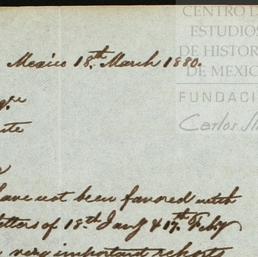 CENTRO D
ESTUDIOS
DE HISTOR
DE MEXIC
FUNDACI
Carlos Sl
Mexico 18th March 1880.
have not been favored with
letters of 18th Jany & 17th Feby
very important reports